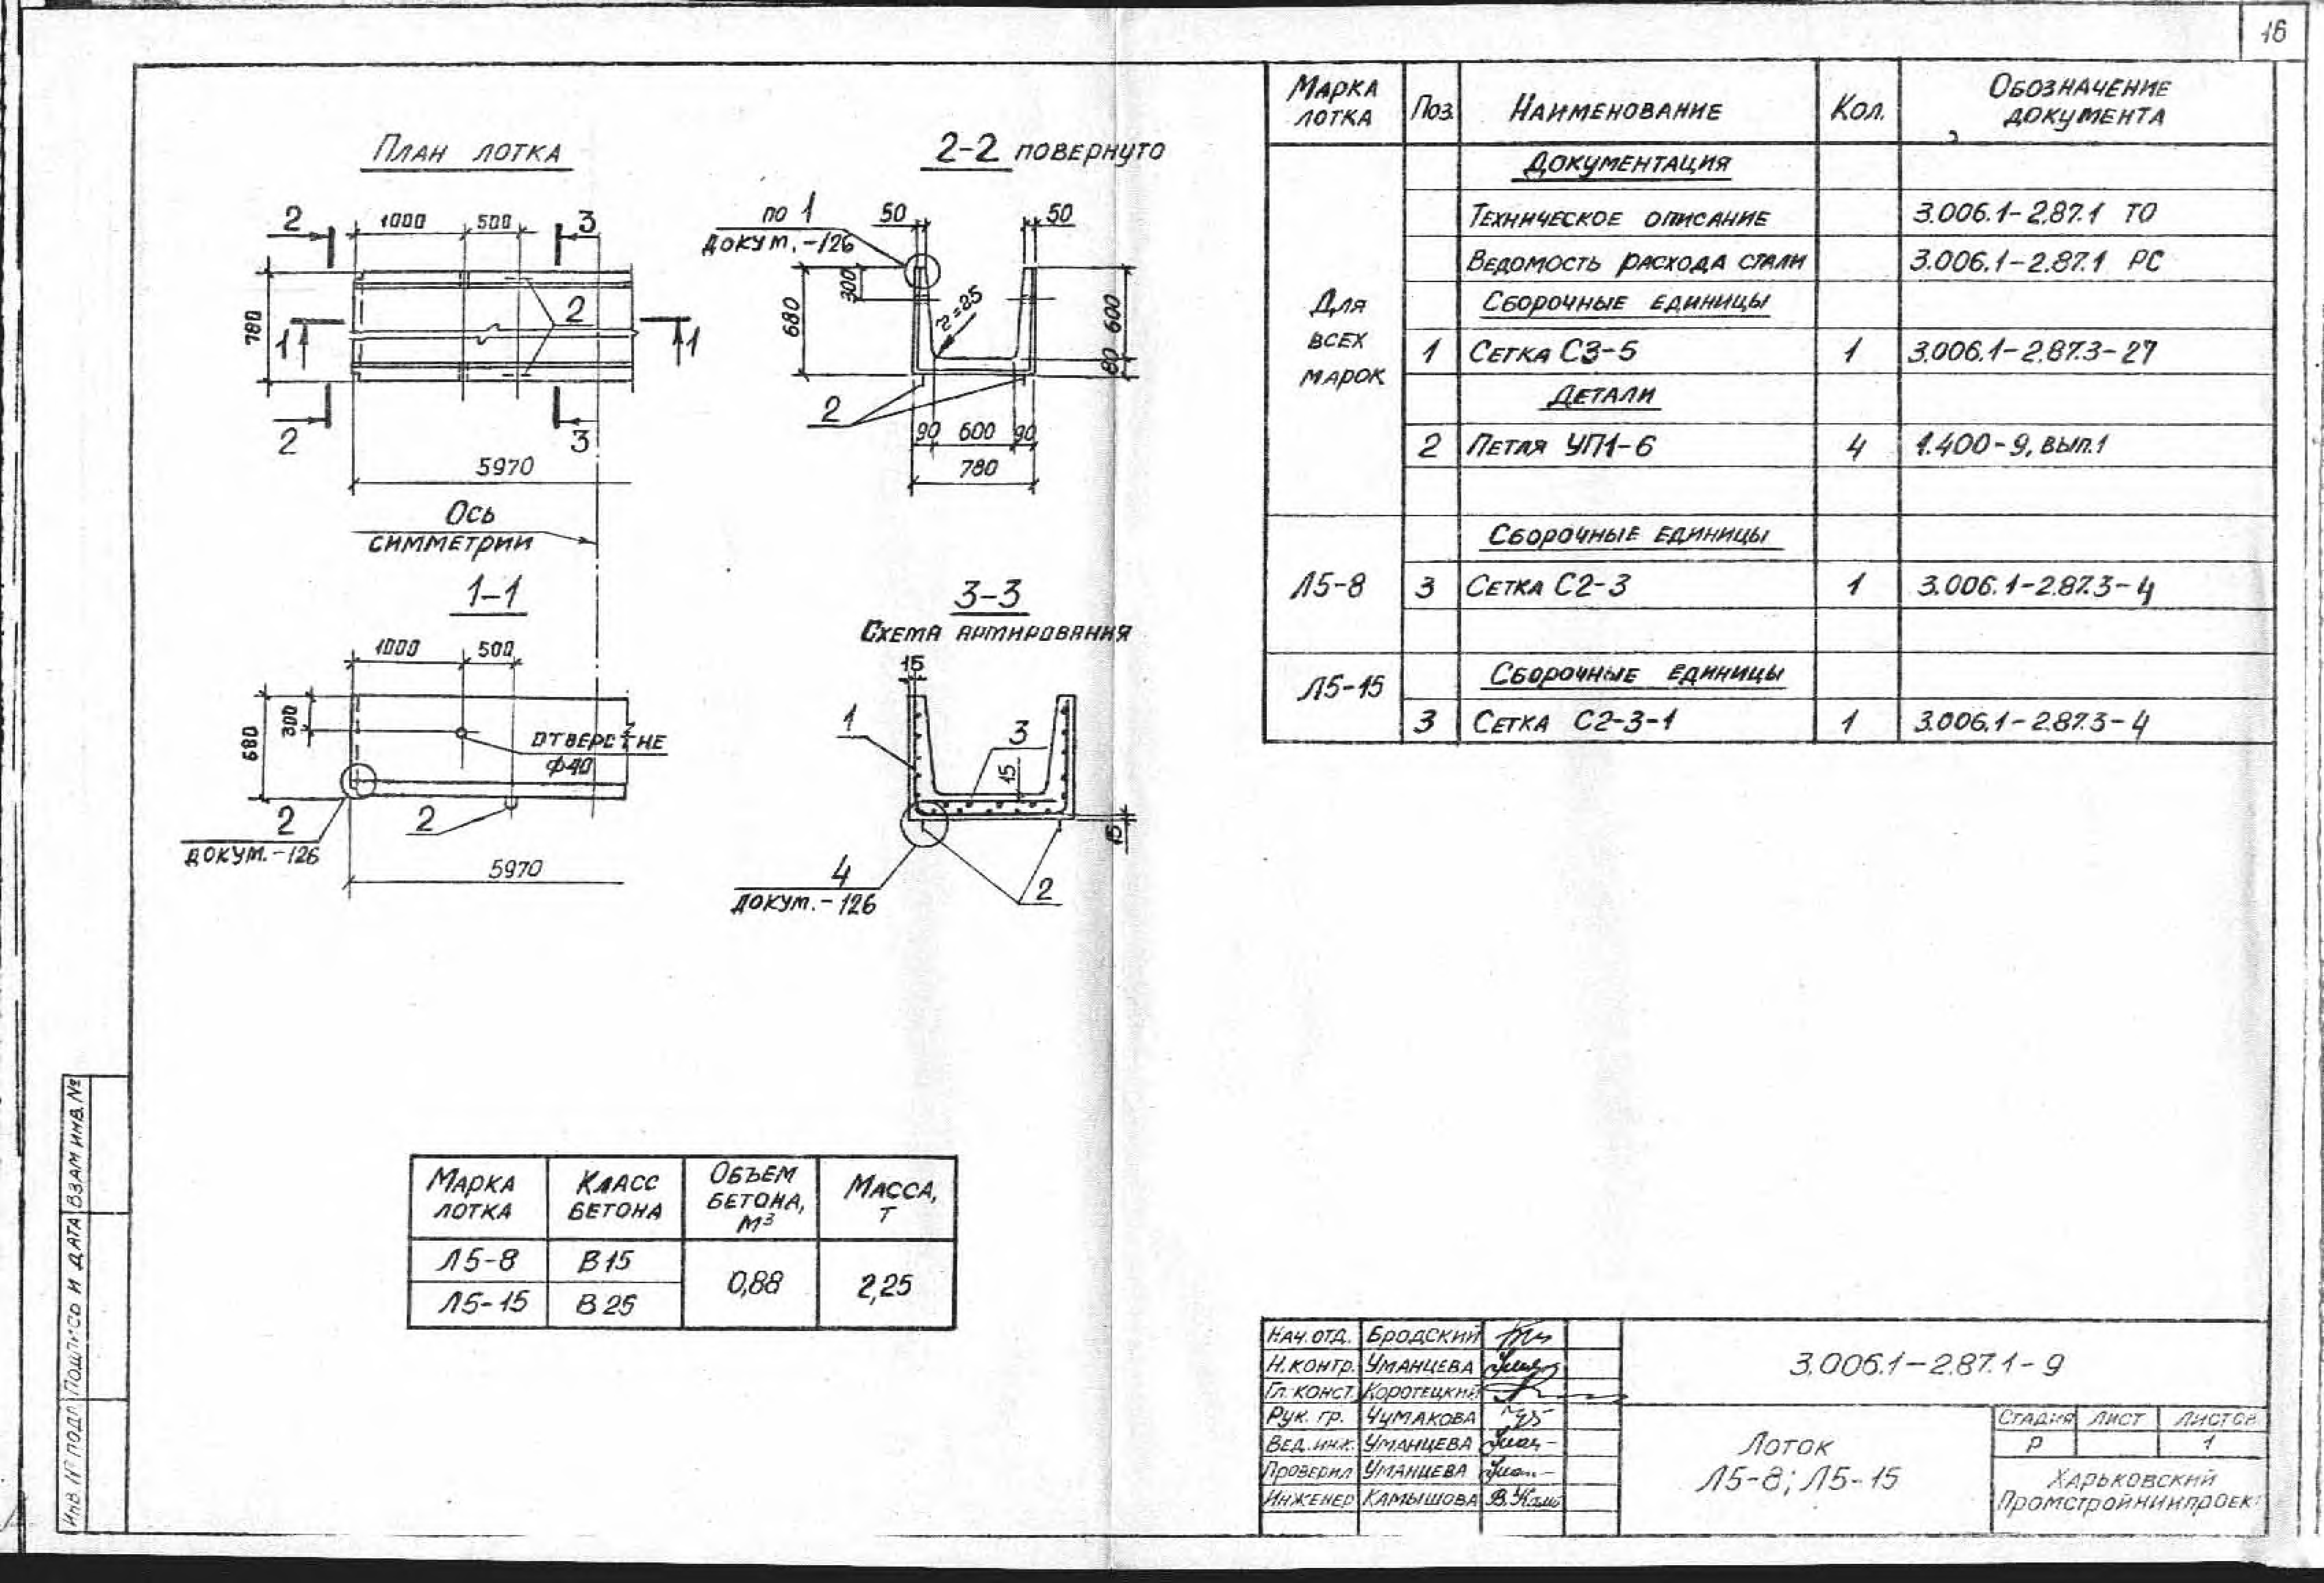 16
План лотка
2
1000
500
3
780
1
2
1
2
3
5970
Ось
симметрии
2-2 повернуто
по 1
докум.-126
50
50
680
300
r=25
600
80
2
90 600 90
780
1-1
1000
500
680
300
отверстие
Ф40
2
докум.-126
2
5970
3-3
Схема армирования
15
1
3
15
15
4
докум.-126
2
Марка лотка Поз. Наименование Кол. Обозначение документа
Для всех марок
Документация
Техническое описание 3.006.1-2.87.1 ТО
Ведомость расхода стали 3.006.1-2.87.1 РС
Сборочные единицы
1 Сетка С3-5 1 3.006.1-2.87.3-27
Детали
2 Петля УП1-6 4 1.400-9, вып.1
Л5-8
Сборочные единицы
3 Сетка С2-3 1 3.006.1-2.87.3-4
Л5-15
Сборочные единицы
3 Сетка С2-3-1 1 3.006.1-2.87.3-4
Марка лотка Класс бетона Объем бетона, м³ Масса, т
Л5-8 В15 0,88 2,25
Л5-15 В25
Инв. № подл. Подпись и дата Взам инв. №
Нач. отд. Бродский
Н. контр. Уманцева
Гл. конст. Коротецкий
Рук. гр. Чумакова
Вед. инж. Уманцева
Проверил Уманцева
Инженер Камышова
3.006.1-2.87.1-9
Лоток
Л5-8; Л5-15
Стадия Лист Листов
Р 1
Харьковский
Промстройниипроек